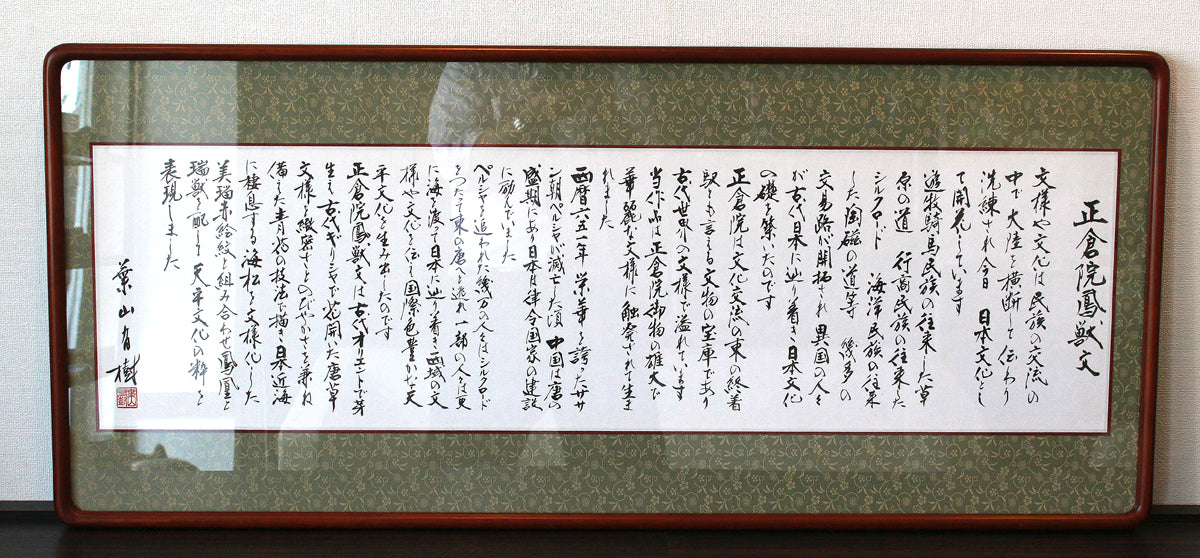 正倉院鳳獣文
文様や文化は民族の交流の
中で大陸を横断して伝わり
洗練され今日 日本文化とし
て開花しています
遊牧騎馬民族の往来した草
原の道 行商民族の往来した
シルクロード 海洋民族の往来
した陶磁の道等 幾多の
交易路が開拓され異国の人々
が古代日本に辿り着き日本文化
の礎を築いたのです
正倉院は文化交流の東の終着
駅とも言える文物の宝庫であり
古代世界の文様で溢れています
当作品は正倉院御物の雄大で
華麗な文様に触発されて生ま
れました
西暦六五一年 栄華を誇ったササ
ン朝ペルシャが滅亡した頃 中国は唐の
盛期にあり日本は律令国家の建設
に励んでいました
ペルシャを追われた幾万の人々はシルクロード
をつたって東の唐へと逃れ一部の人々は更
に海を渡って日本に辿り着き西域の文
様や文化を伝え国際色豊かな天
平文化を生み出したのです
正倉院鳳獣文は古代オリエントで芽
生え古代ギリシャで花開いた唐草
文様を緻密さとのびやかさを兼ね
備えた青花の技法で描き日本近海
に棲息する海松を文様化した
美瑠赤絵紋を組み合わせ鳳凰と
瑞獣を配して天平文化の粋を
表現しました
葉山有樹